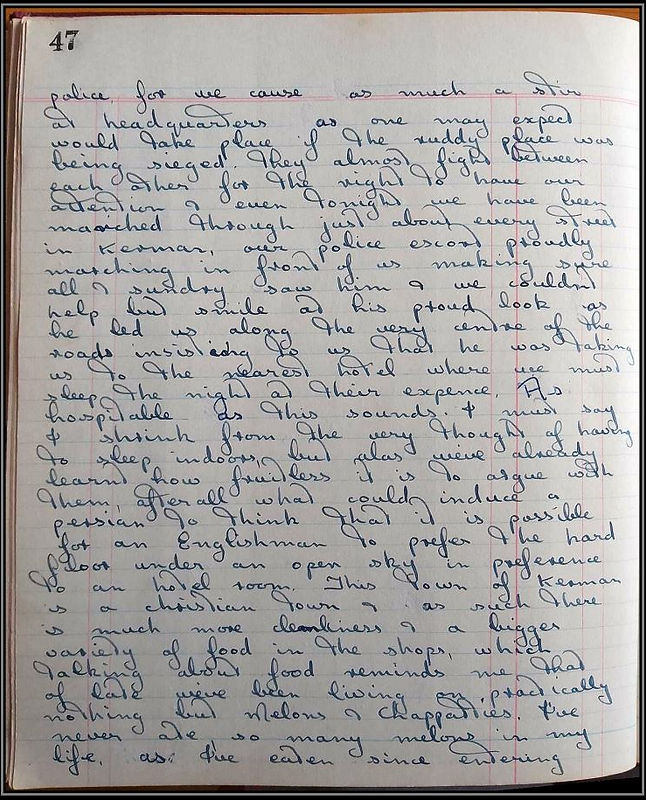 47
police, for we cause as much a stir
at headquarters as one may expect
would take place if the ruddy place was
being sieged they almost fight between
each other for the right to have our
attention & even tonight we have been
marched through just about every street
in Kerman, our police escort proudly
marching in front of us making sure
all & sundry saw him & we couldnt
help but smile at his proud look as
he led us along the very centre of the
roads insisting to us that he was taking
us to the nearest hotel where we must
sleep the night at their expence. As
hospitable as this sounds. I must say
I shrink from the very thought of having
to sleep indoors, but alas weve already
learnt how fruitless it is to argue with
them, after all what could induce a
persian to think that it is possible
for an Englishman to prefer the hard
floor under an open sky in preference
to an hotel room. This town of Kerman
is a christian town & as such there
is much more cleanliness & a bigger
variety of food in the shops, which
talking about food reminds me that
of late weve been living on practically
nothing but melons & chappatties. I've
never ate so many melons in my
life, as I've eaten since entering